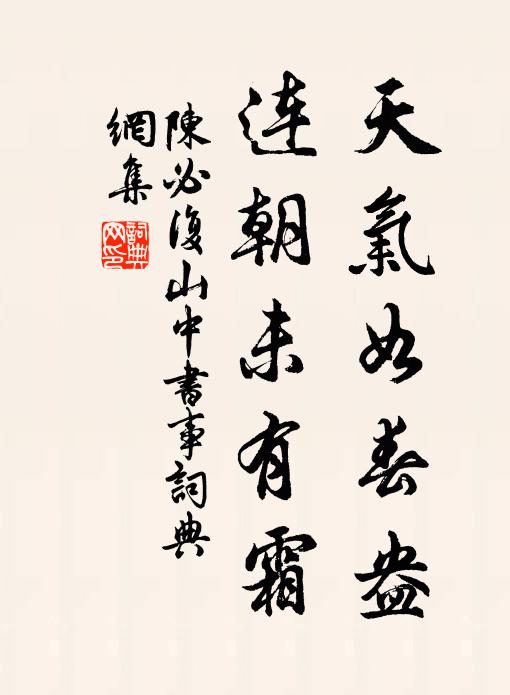 天氣如春盎
連朝未有霜
陳必復山中書事詞典
網集
詞典
网印